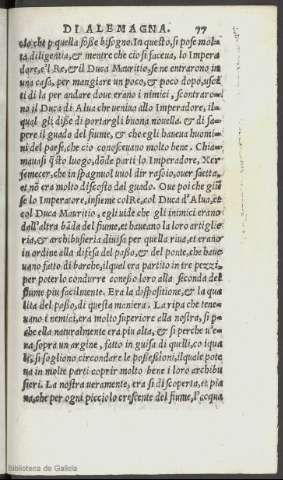 DI ALEMAGNA. 77
olo, che p quella fosse bisogno. In questo, si pose mol-
ta, diligentia, & mentre che cio si faceua, lo Impera
dore, e'l Re, & il Duca Mauritio, se ne entrarono in
una casa, per mangiare un poco, & poco dopò, usci
ti di la per andare doue erano i nimici, scontraro-
no il Duca di Alua che ueniua allo Imperadore, il-
qual gli disse di portargli buona nouella, & di sa-
pere il guado del fiume, & che egli haueua huomi
ni del paese, che cio conosceuano molto bene. Chia-
mauasi q̃sto luogo, dõde parti lo Imperadore, Xer
semeser, che in spagnuol uuol dir rasoio, ouer saetta,
et nõ era molto discosto dal guado. Oue poi che giũ
se lo Imperatore, insieme col Re, col Duca d'Alua, et
col Duca Mauritio, egli uide che gli inimici erano
dall'altra bãda del fiume, et haueano la loro artiglie
ria, & archibusieria diuisa per quella riua, et erano
in ordine alla difesa del passo, & del ponte, che haue
uano fatto di barche, ilquel era partito in tre pezzi,
per poterlo condurre con esso loro alla seconda del
fiume piu facilmente. Era la dispositione, & la qua
lità del passo, di questa maniera. La ripa che tene-
uano i nemici, era molto superiore ella nostra, si p-
che ella naturalmente era piu alta, & si perche u'e-
ua soprà un argine, fatto in guisa di quelli, co iqua
li, si sogliono, circondare le possessioni, ilquale pote
ua in molte parti coprir molto bene i loro archibu
sieri. La nostra ueramente, era si discoperta, et pia
na, che per ogni picciolo crescente del fiume, l'acqua
Biblioteca de Galicia